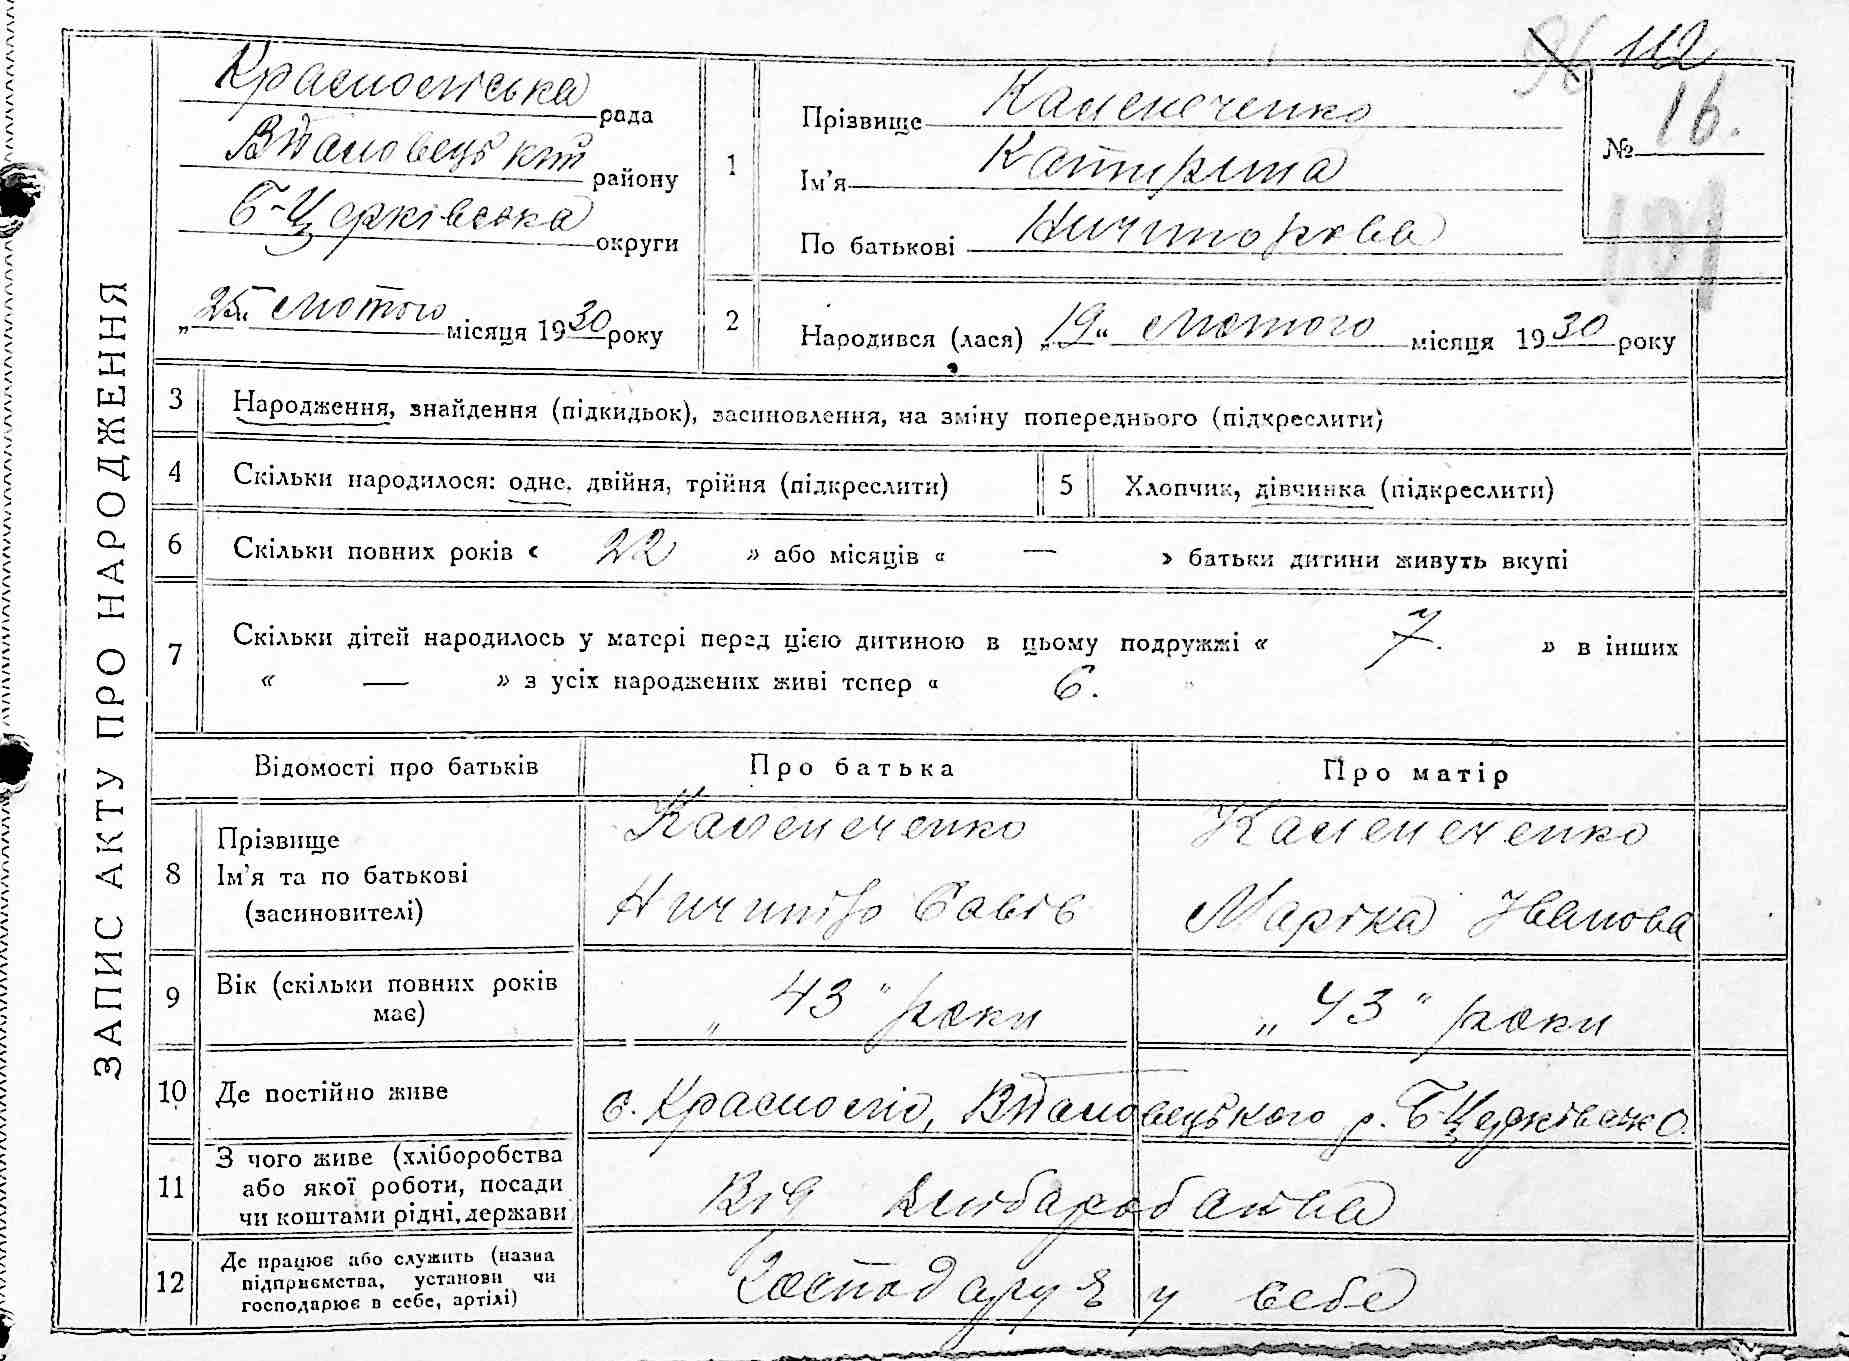 ЗАПИС АКТУ ПРО НАРОДЖЕННЯ
112
рада
району
Б-Церківська округи
„25“ лютого місяця 1930 року
1
Прізвище Каменеченко
Ім'я Катирина
По батькові Ничипорова
№ 16.
101
2
Народився (лася) „19“ лютого місяця 1930 року
3
Народження, знайдення (підкидьок), засиновлення, на зміну попереднього (підкреслити)
4
Скільки народилося: одне, двійня, трійня (підкреслити)
5
Хлопчик, дівчинка (підкреслити)
6
Скільки повних років « 22 » або місяців « — » батьки дитини живуть вкупі
7
Скільки дітей народилось у матері перед цією дитиною в цьому подружжі « 7. » в інших
« — » з усіх народжених живі тепер « 6.
Відомості про батьків
Про батька
Про матір
8
Прізвище
Ім'я та по батькові
(засиновителі)
Каменеченко
Ничипір Савів
Каменеченко
Марійка Іванова
9
Вік (скільки повних років
має)
„43“ роки
„43“ роки
10
Де постійно живе
с. р. Б-Церківськ о.
11
З чого живе (хліборобства
або якої роботи, посади
чи коштами рідні, держави
Від хлібаробства
12
Де працює або служить (назва
підприємства, установи чи
господарює в себе, артілі)
Господарує у себе